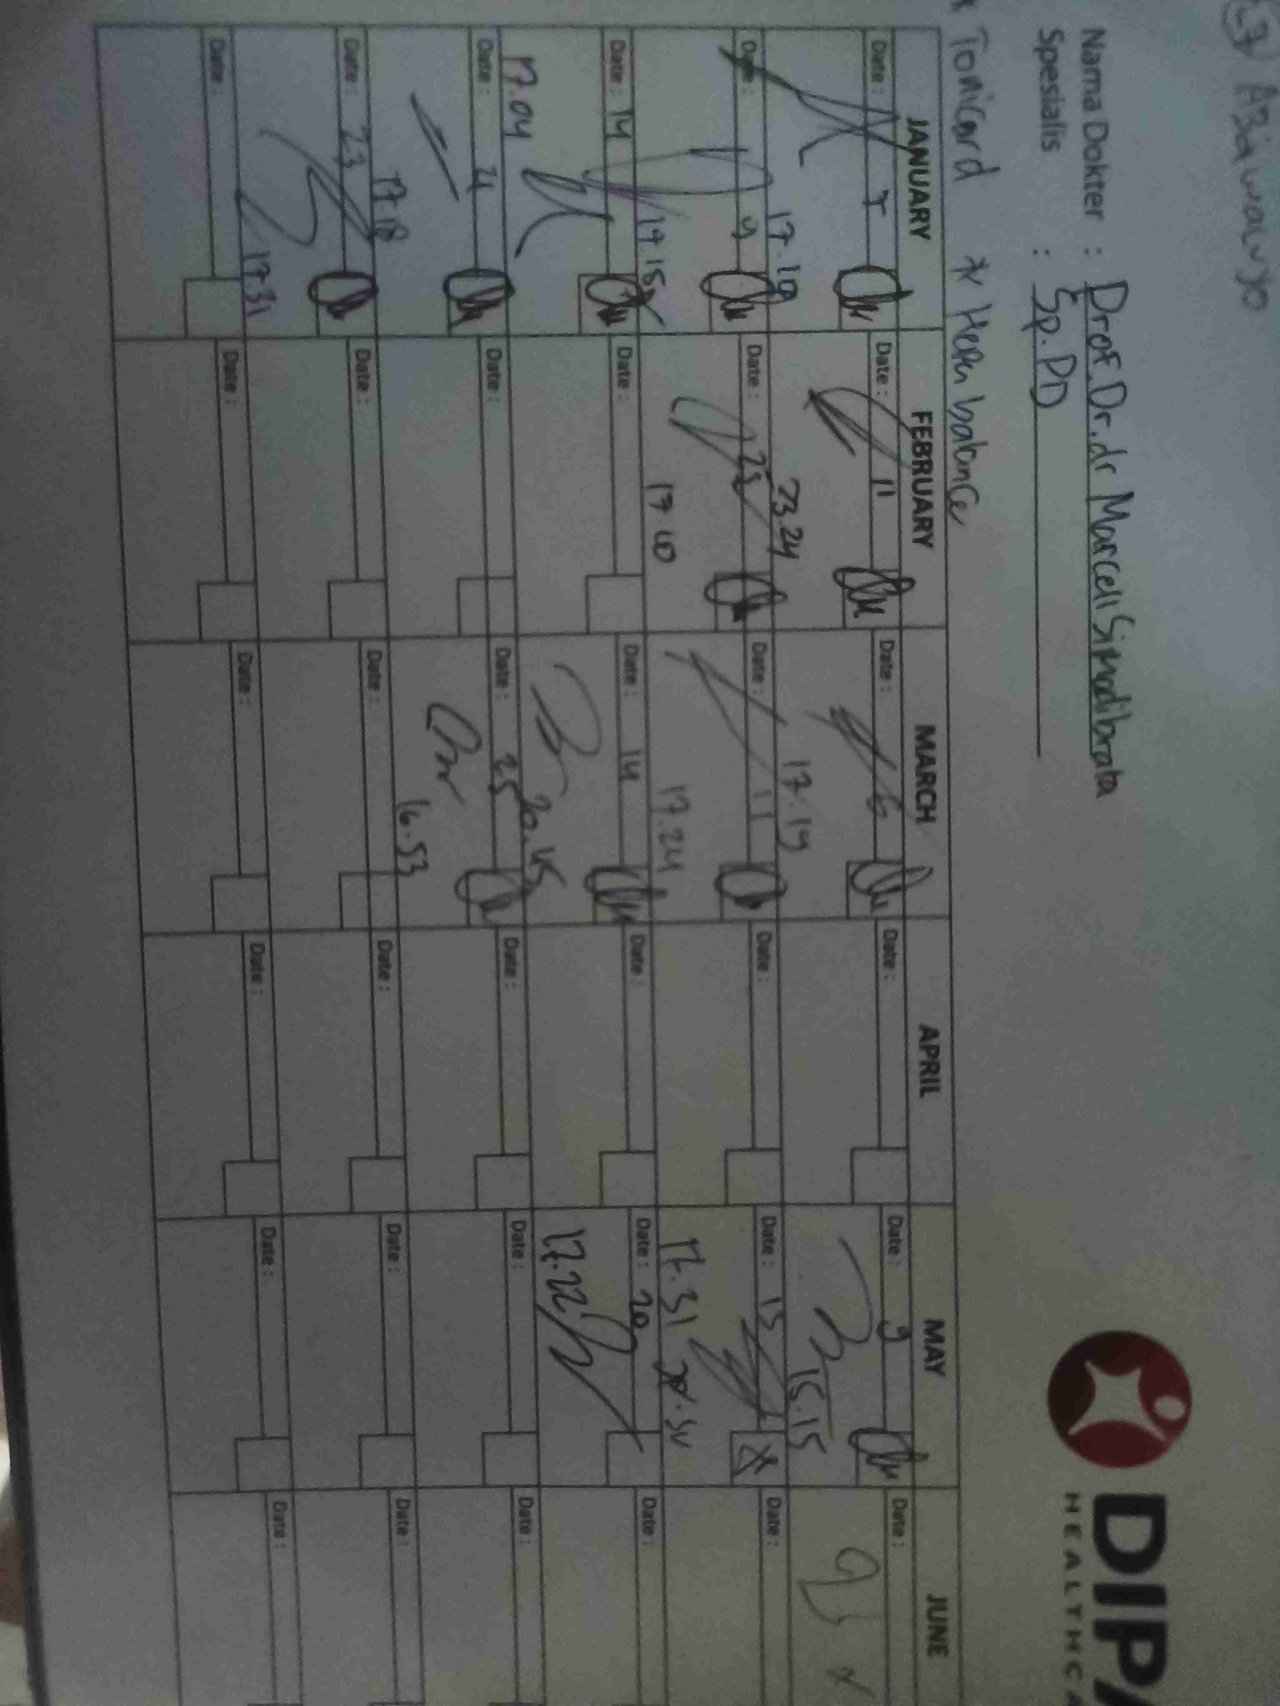 Nama Dokter : Prof. Dr. dr Marcell Simadibrata
Spesialis : Sp. PD
DIPA
HEALTHCA
* Tonicard * Hepa balance
JANUARY FEBRUARY MARCH APRIL MAY JUNE
Date : 7 Date : 11 Date : 6 Date : Date : 9 Date :
17.19 23.24 17.19 15.15
Date : 9 Date : 25 Date : 11 Date : Date : 15 Date :
17.10 17.24 17.31
Date : 14 Date : Date : 14 Date : Date : 20 Date :
17.04 20.45 17.22
Date : 21 Date : Date : 25 Date : Date : Date :
17.18 16.53
Date : 23 Date : Date : Date : Date : Date :
17.31
Date : Date : Date : Date : Date : Date :